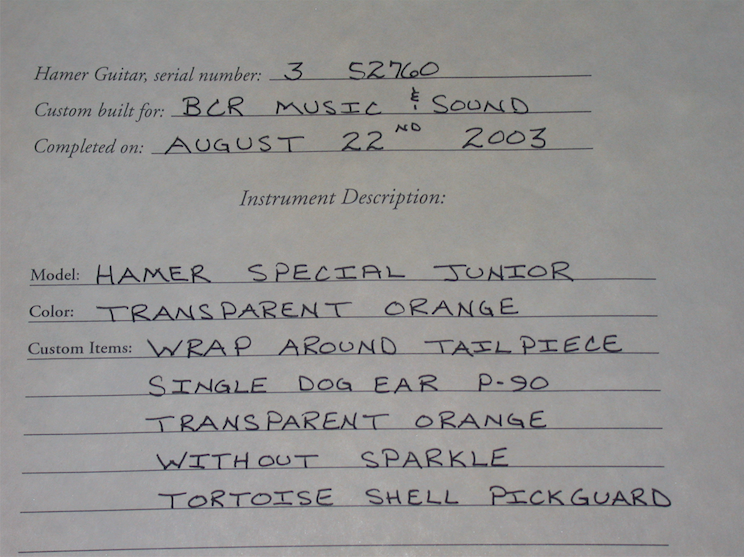 Hamer Guitar, serial number: 3 52760
Custom built for: BCR MUSIC & SOUND
Completed on: AUGUST 22ND 2003
Instrument Description:
Model: HAMER SPECIAL JUNIOR
Color: TRANSPARENT ORANGE
Custom Items: WRAP AROUND TAILPIECE
SINGLE DOG EAR P-90
TRANSPARENT ORANGE
WITHOUT SPARKLE
TORTOISE SHELL PICKGUARD